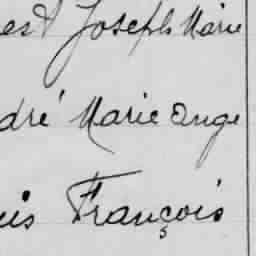 est Joseph Marie
dré Marie Ange
uis François